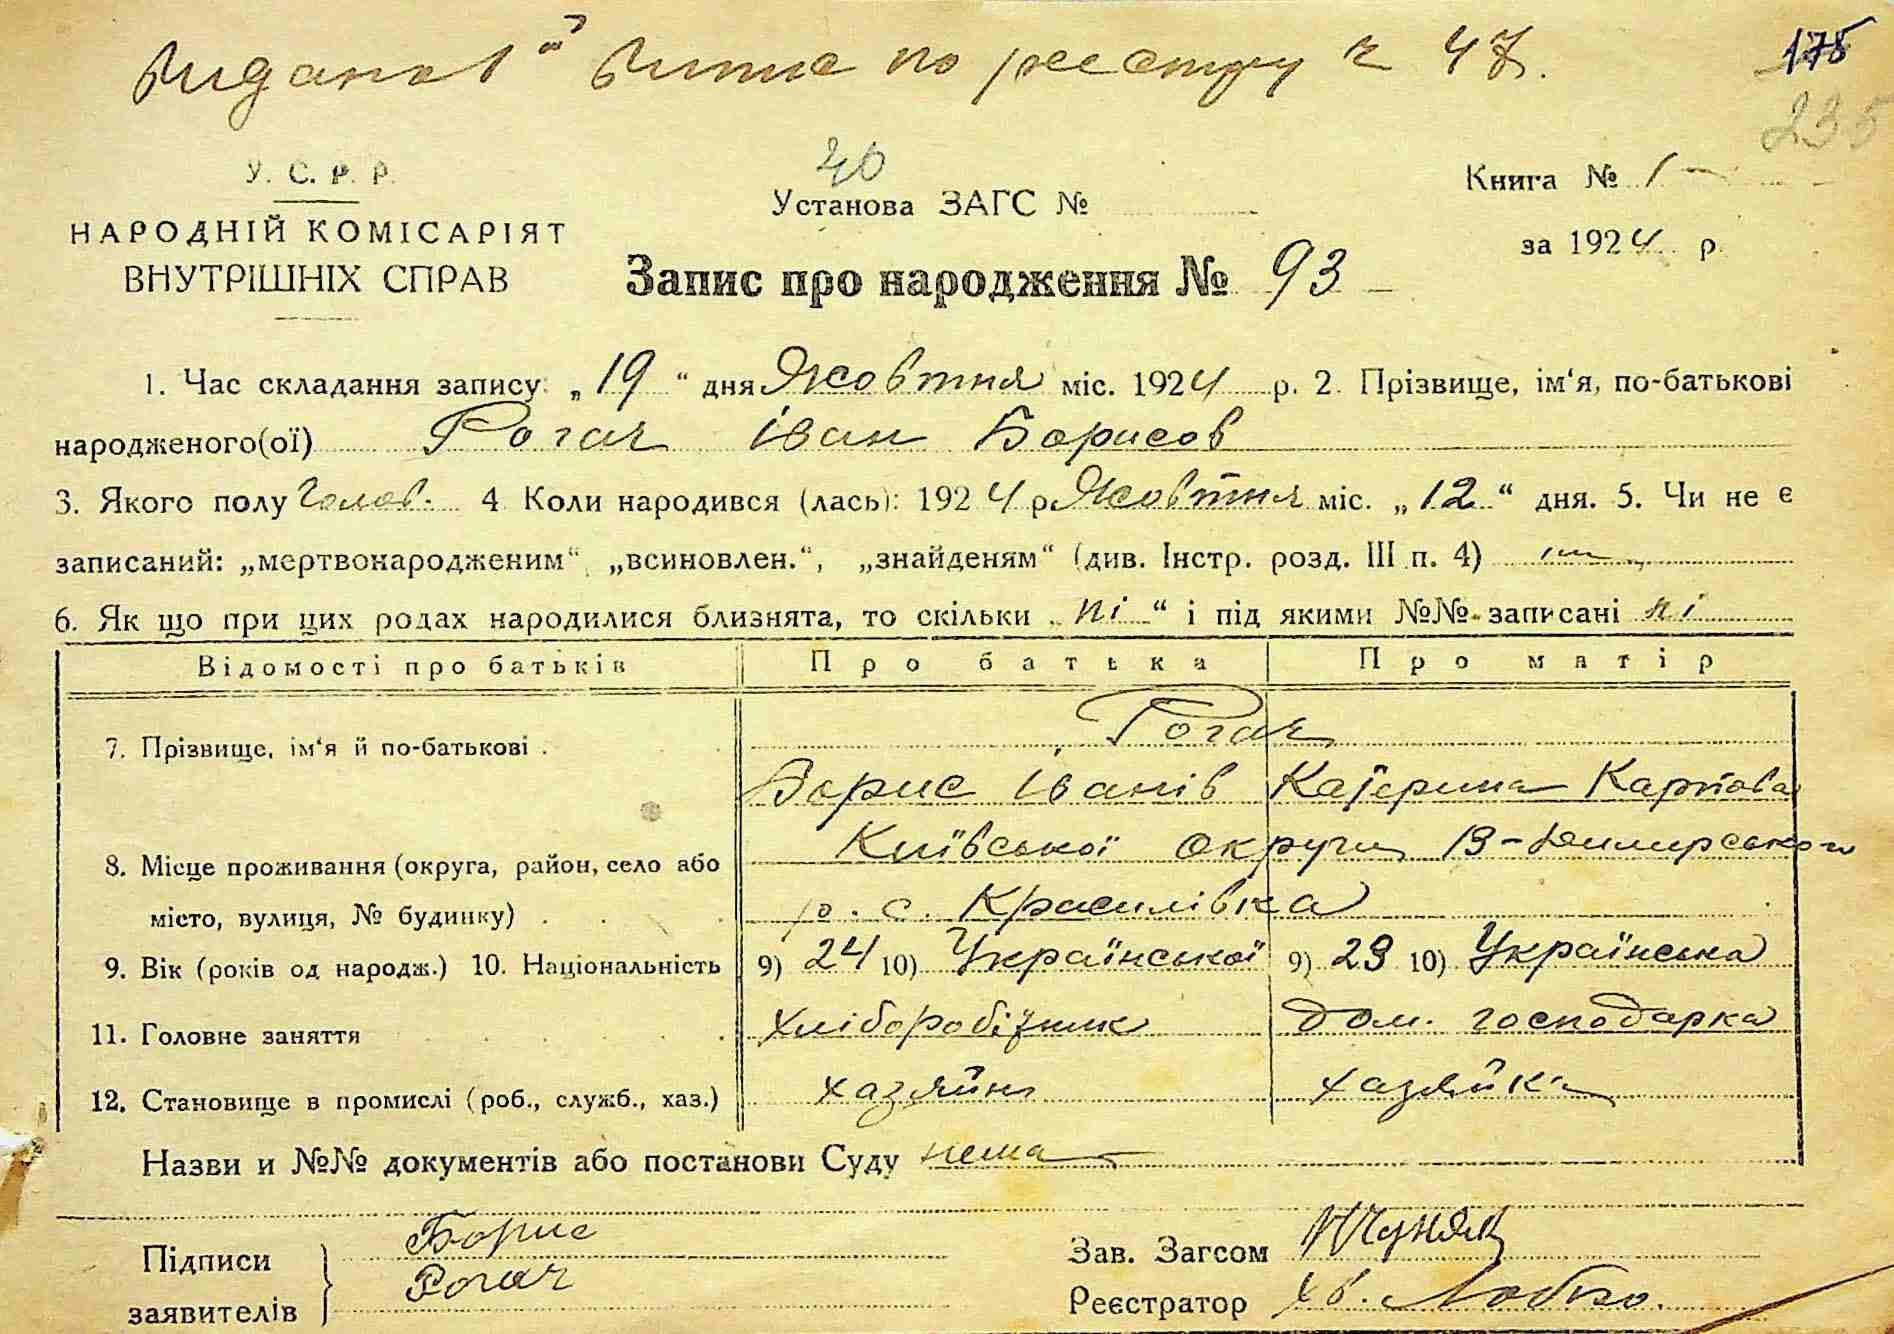 Видано 1й витяг по реєстру № 47.
175
235
У. С. Р. Р.
НАРОДНІЙ КОМІСАРІЯТ
ВНУТРІШНІХ СПРАВ
40
Установа ЗАГС №
Запис про народження № 93
Книга № 1
за 1924 р.
1. Час складання запису: „19“ дня Жовтня міс. 1924 р. 2. Прізвище, ім‘я, по-батькові
народженого(ої) Рогач Іван Борисов
3. Якого полу Голов. 4. Коли народився (лась): 1924 р. Жовтня міс. „12“ дня. 5. Чи не є
записаний: „мертвонародженим“, „всиновлен.“, „знайденям“ (див. Інстр. розд. III п. 4)
6. Як що при цих родах народилися близнята, то скільки „ні“ і під якими №№ записані ні
Відомості про батьків Про батька Про матір
7. Прізвище, ім‘я й по-батькові Рогач
Борис Іванів Катерина Карпова
8. Місце проживання (округа, район, село або Київської округи В-Димирського
місто, вулиця, № будинку) р. с. Красилівка
9. Вік (років од народж.) 10. Національність 9) 24 10) Української 9) 23 10) Українська
11. Головне заняття хліборобізник дом. господарка
12. Становище в промислі (роб., служб., хаз.) хазяйн хазяйка
Назви и №№ документів або постанови Суду нема
Підписи Борис
заявителів Рогач
Зав. Загсом
Реєстратор Хв. Лобко.